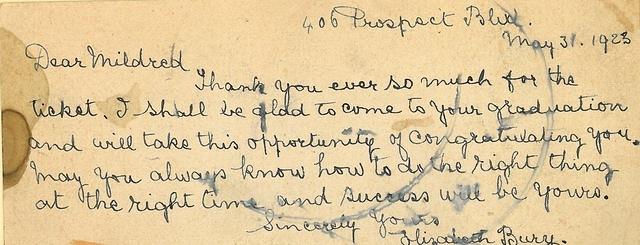 406 Prospect Blvd.
May 31. 1923
Dear Mildred
Thank you ever so much for the
ticket. I shall be glad to come to your graduation
and will take this opportunity of congratulating you.
May you always know how to do the right thing
at the right time and success will be yours.
Sincerely Yours
Elizabeth Bury.